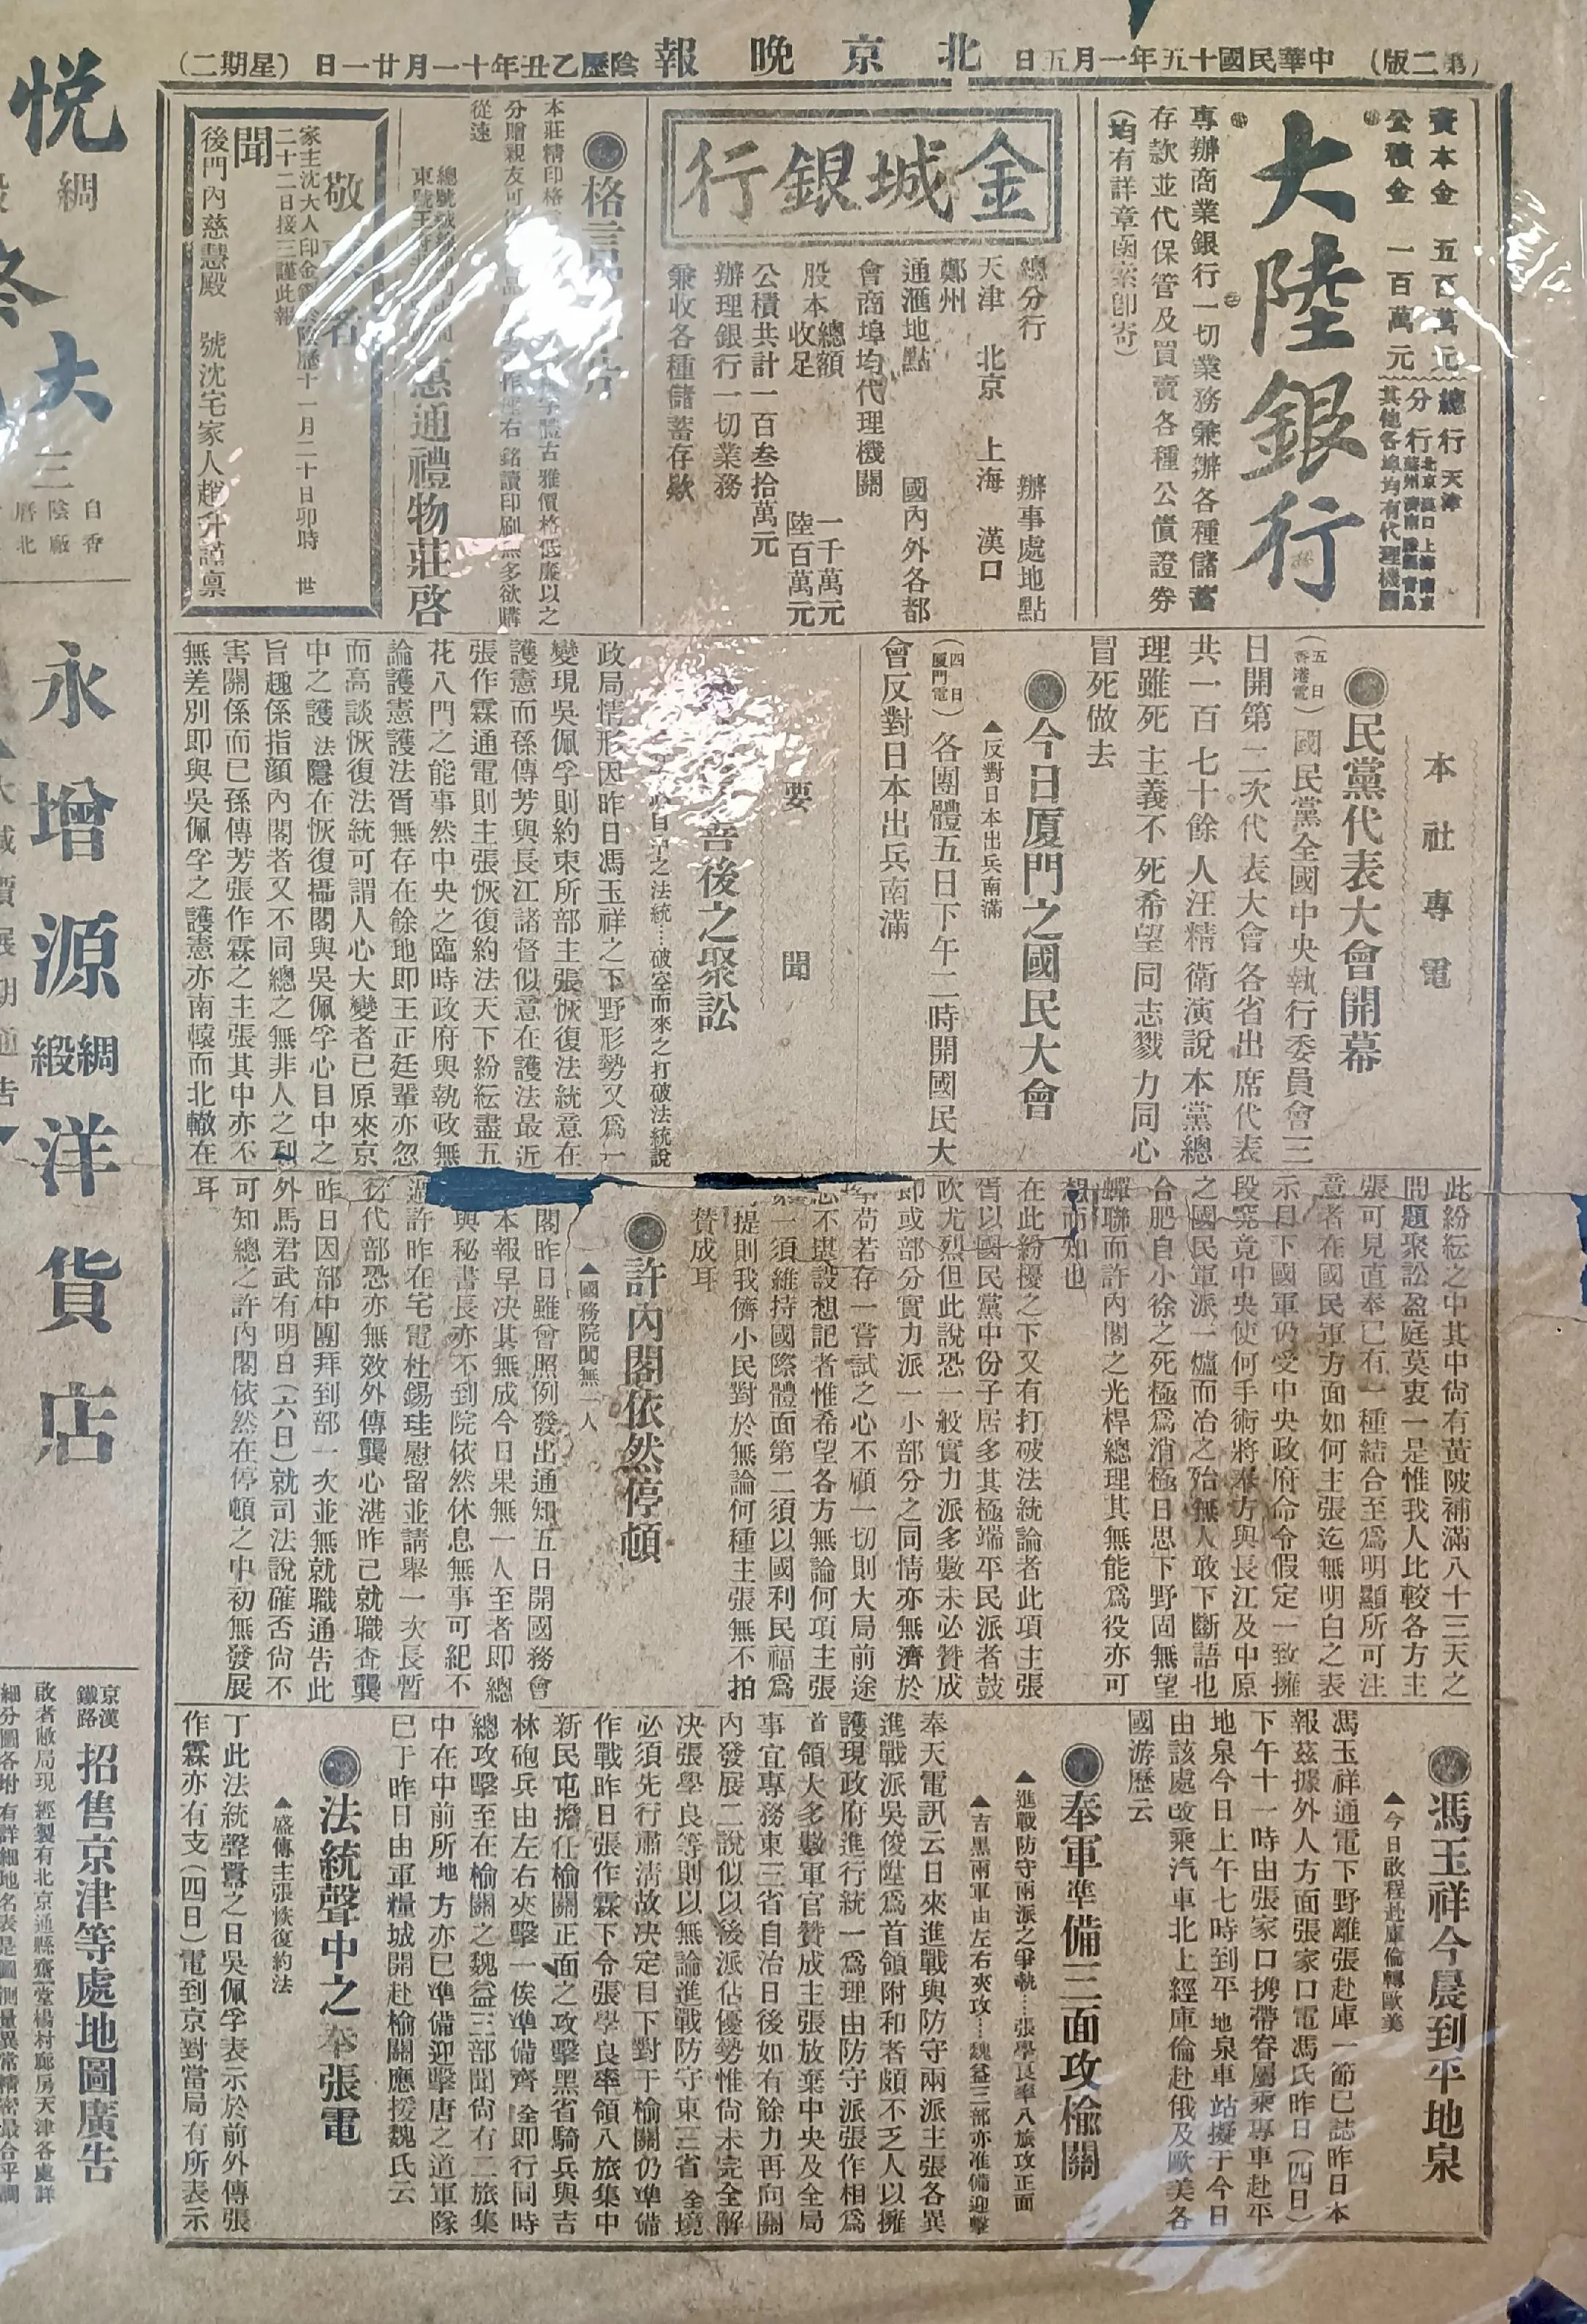 （第二版）
中華民國十五年一月五日
北京晚報
陰歷乙丑年十一月廿一日
（星期二）
資本金　五百萬元
公積金　一百萬元
總行天津
分行
北京　漢口　上海　南京
其他各埠均有代理機關
大陸銀行
專辦商業銀行一切業務兼辦各種儲蓄
存款並代保管及買賣各種公債證券
（均有詳章函索即寄）
金城銀行
總分行　辦事處地點
天津　北京　上海　漢口
鄭州
通滙地點　國內外各都
會商埠均代理機關
股本總額　一千萬元
收足　陸百萬元
公積共計一百叁拾萬元
辦理銀行一切業務
兼收各種儲蓄存欵
本莊精印格
字體古雅價格低廉以之
分贈親友可
右銘讀印刷無多欲購
從速
惠通禮物莊啓
敬
聞
家主沈大人印金
陰歷十一月二十日卯時　世
二十二日接三謹此報
後門內慈慧殿　號沈宅家人趙升謹稟
本社專電
●民黨代表大會開幕
（五日香港電）國民黨全國中央執行委員會三
日開第二次代表大會各省出席代表
共一百七十餘人汪精衛演說本黨總
理雖死主義不死希望同志戮力同心
冒死做去
●今日厦門之國民大會
▲反對日本出兵南滿
（四日厦門電）各團體五日下午二時開國民大
會反對日本出兵南滿
要聞
善後之聚訟
之法統…破空而來之打破法統說
政局情形因昨日馮玉祥之下野形勢又爲一
變現吳佩孚則約束所部主張恢復法統意在
護憲而孫傳芳與長江諸督似意在護法最近
張作霖通電則主張恢復約法天下紛紜盡五
花八門之能事然中央之臨時政府與執政無
論護憲護法胥無存在餘地即王正廷輩亦忽
而高談恢復法統可謂人心大變者已原來京
中之護法隱在恢復攝閣與吳佩孚心目中之
旨趣係指顏內閣者又不同總之無非人之利
害關係而已孫傳芳張作霖之主張其中亦不
無差別即與吳佩孚之護憲亦南轅而北轍在
此紛紜之中其中尙有黃陂補滿八十三天之
問題聚訟盈庭莫衷一是惟我人比較各方主
張可見直奉已有一種結合至爲明顯所可注
意者在國民軍方面如何主張迄無明白之表
示目下國軍仍受中央政府命令假定一致擁
段究竟中央使何手術將奉方與長江及中原
之國民軍派一爐而冶之殆無人敢下斷語也
合肥自小徐之死極爲消極日思下野固無望
蟬聯而許內閣之光桿總理其無能爲役亦可
想而知也
在此紛擾之下又有打破法統論者此項主張
胥以國民黨中份子居多其極端平民派者鼓
吹尤烈但此說恐一般實力派多數未必贊成
即或部分實力派一小部分之同情亦無濟於
事苟若存一嘗試之心不顧一切則大局前途
不堪設想記者惟希望各方無論何項主張
一須維持國際體面第二須以國利民福爲
提則我儕小民對於無論何種主張無不拍
贊成耳
●許內閣依然停頓
▲國務院闃無一人
閣昨日雖會照例發出通知五日開國務會
本報早决其無成今日果無一人至者即總
與秘書長亦不到院依然休息無事可紀不
過許昨在宅電杜錫珪慰留並請舉一次長暫
行代部恐亦無效外傳龔心湛昨已就職查龔
昨日因部中團拜到部一次並無就職通告此
外馬君武有明日（六日）就司法說確否尙不
可知總之許內閣依然在停頓之中初無發展
耳
●馮玉祥今晨到平地泉
▲今日啟程赴庫倫轉歐美
馮玉祥通電下野離張赴庫一節已誌昨日本
報茲據外人方面張家口電馮氏昨日（四日）
下午十一時由張家口携帶眷屬乘專車赴平
地泉今日上午七時到平地泉車站擬于今日
由該處改乘汽車北上經庫倫赴俄及歐美各
國游歷云
●奉軍準備三面攻榆關
▲進戰防守兩派之爭執…張學良率八旅攻正面
▲吉黑兩軍由左右夾攻…魏益三部亦准備迎擊
奉天電訊云日來進戰與防守兩派主張各異
進戰派吳俊陞爲首領附和者頗不乏人以擁
護現政府進行統一爲理由防守派張作相爲
首領大多數軍官贊成主張放棄中央及全局
事宜專務東三省自治日後如有餘力再向關
內發展二說似以後派佔優勢惟尙未完全解
决張學良等則以無論進戰防守東三省全境
必須先行肅淸故决定目下對于榆關仍準備
作戰昨日張作霖下令張學良率領八旅集中
新民屯擔任榆關正面之攻擊黑省騎兵與吉
林砲兵由左右夾擊一俟準備齊全即行同時
總攻擊至在榆關之魏益三部聞尙有二旅集
中在中前所地方亦已準備迎擊唐之道軍隊
已于昨日由軍糧城開赴榆關應援魏氏云
●法統聲中之奉張電
▲盛傳主張恢復約法
丁此法統聲囂之日吳佩孚表示於前外傳張
作霖亦有支（四日）電到京對當局有所表示
悅
綢
大
三
永增源綢緞洋貨店
京漢鐵路
招售京津等處地圖廣告
啟者敝局現經製有北京通縣齋堂楊村廊房天津各處詳
細分圖各附有詳細地名表是圖測量異常精密最合乎調